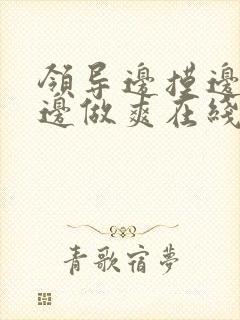 領导邊摸邊
邊做爽在綫
青歌宿夢